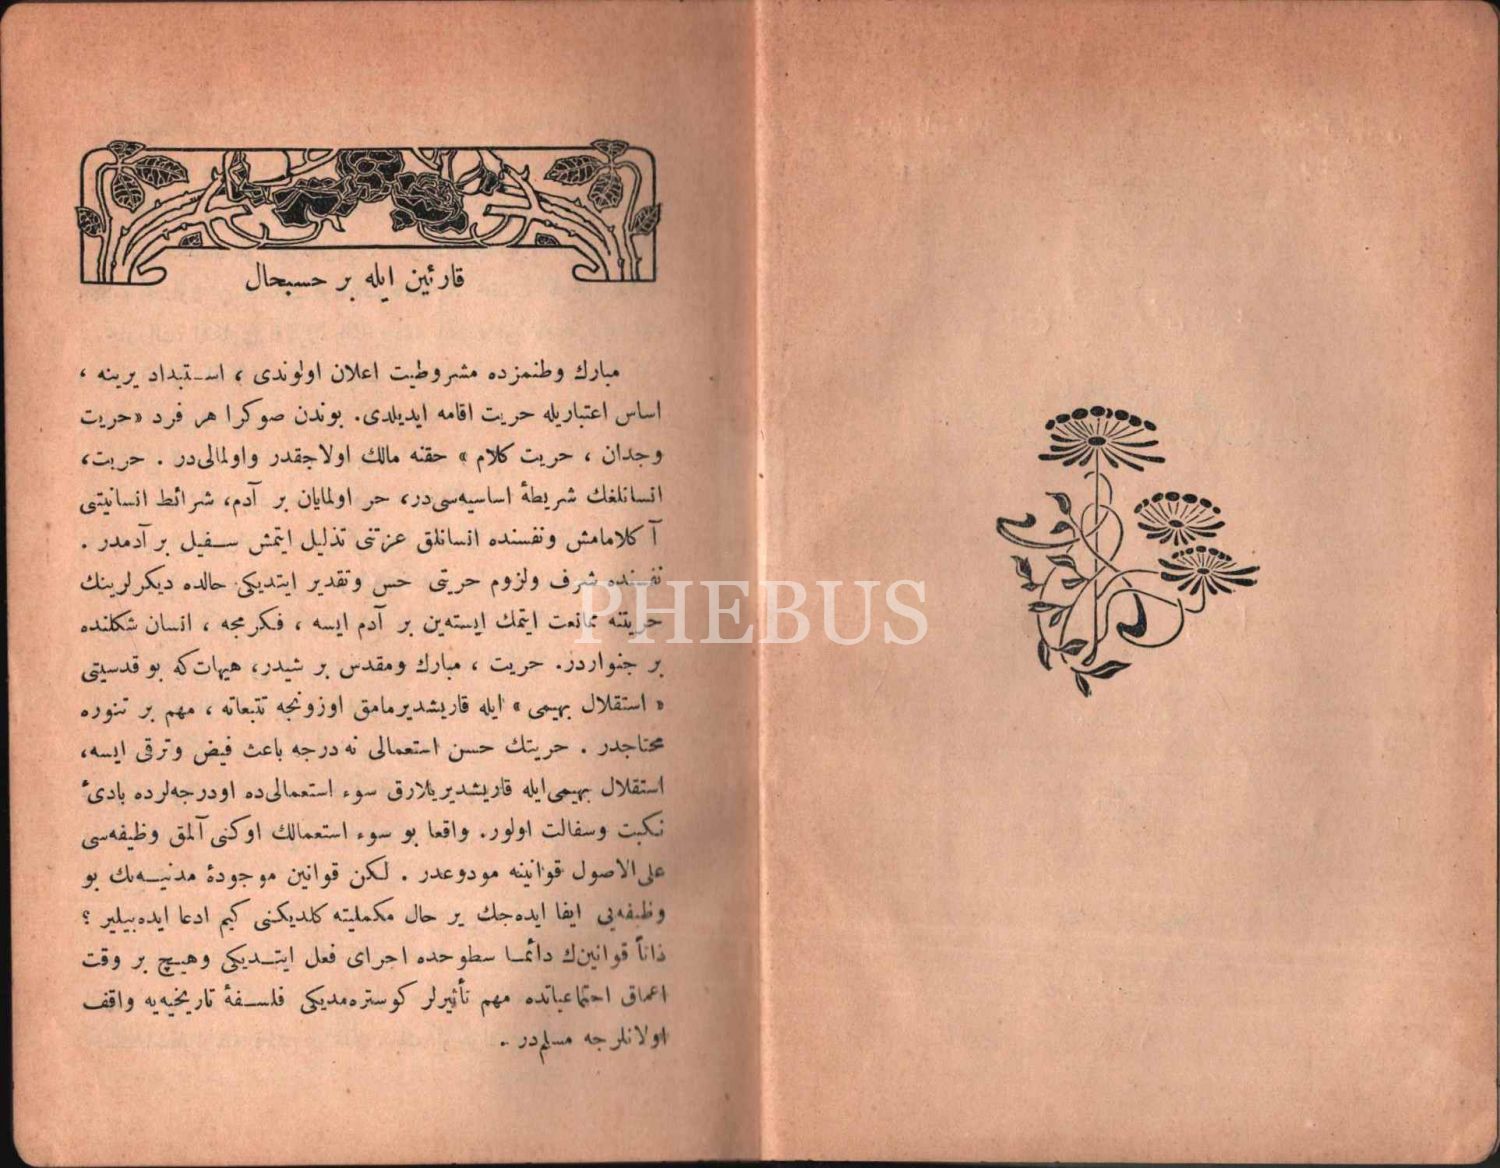 قارئین ایله بر حسبحال
مبارك وطنمزده مشروطیت اعلان اولوندی ، استبداد یرینه ،
اساس اعتباریله حریت اقامه ایدیلدی. بوندن صوكرا هر فرد «حریت
وجدان ، حریت كلام » حقنه مالك اولاجقدر واولمالی‌در . حریت،
انسانلغك شریطهٔ اساسیه‌سی‌در، حر اولمایان بر آدم، شرائط انسانیتی
آكلامامش ونفسنده انسانلق عزتنی تذلیل ایتمش سفیل بر آدمدر .
نفسنده شرف ولزوم حریتی حس وتقدیر ایتدیكی حالده دیكرلرینك
حریتنه ممانعت ایتمك ایسته‌ین بر آدم ایسه ، فكرمجه ، انسان شكلنده
بر جنواردر. حریت ، مبارك ومقدس بر شیدر، هیهات‌كه بو قدسیتی
« استقلال بهیمی » ایله قاریشدیرمامق اوزونجه تتبعاته ، مهم بر تنوره
محتاجدر . حریتك حسن استعمالی نه درجه باعث فیض وترقی ایسه،
استقلال بهیمی‌ایله قاریشدیریلارق سوء استعمالی‌ده اودرجه‌لرده بادئ
نكبت وسفالت اولور. واقعا بو سوء استعمالك اوكنی آلمق وظیفه‌سی
علی‌الاصول قوانینه مودوعدر . لكن قوانین موجودهٔ مدنیه‌نك بو
وظیفه‌یی ایفا ایده‌جك بر حال مكملیته كلدیكنی كیم ادعا ایده‌بیلیر ؟
ذاتاً قوانین‌ك دائما سطوحده اجرای فعل ایتدیكی وهیچ بر وقت
اعماق اجتماعیاتده مهم تأثیرلر كوستره‌مدیكی فلسفهٔ تاریخیه‌یه واقف
اولانلرجه مسلم‌در .
PHEBUS